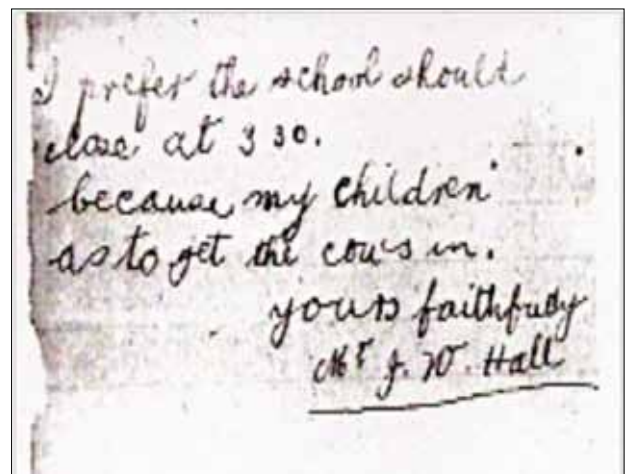 I prefer the school should
close at 3 30.
because my children
as to get the cow's in.
yours faithfudy
Mr J. W. Hall